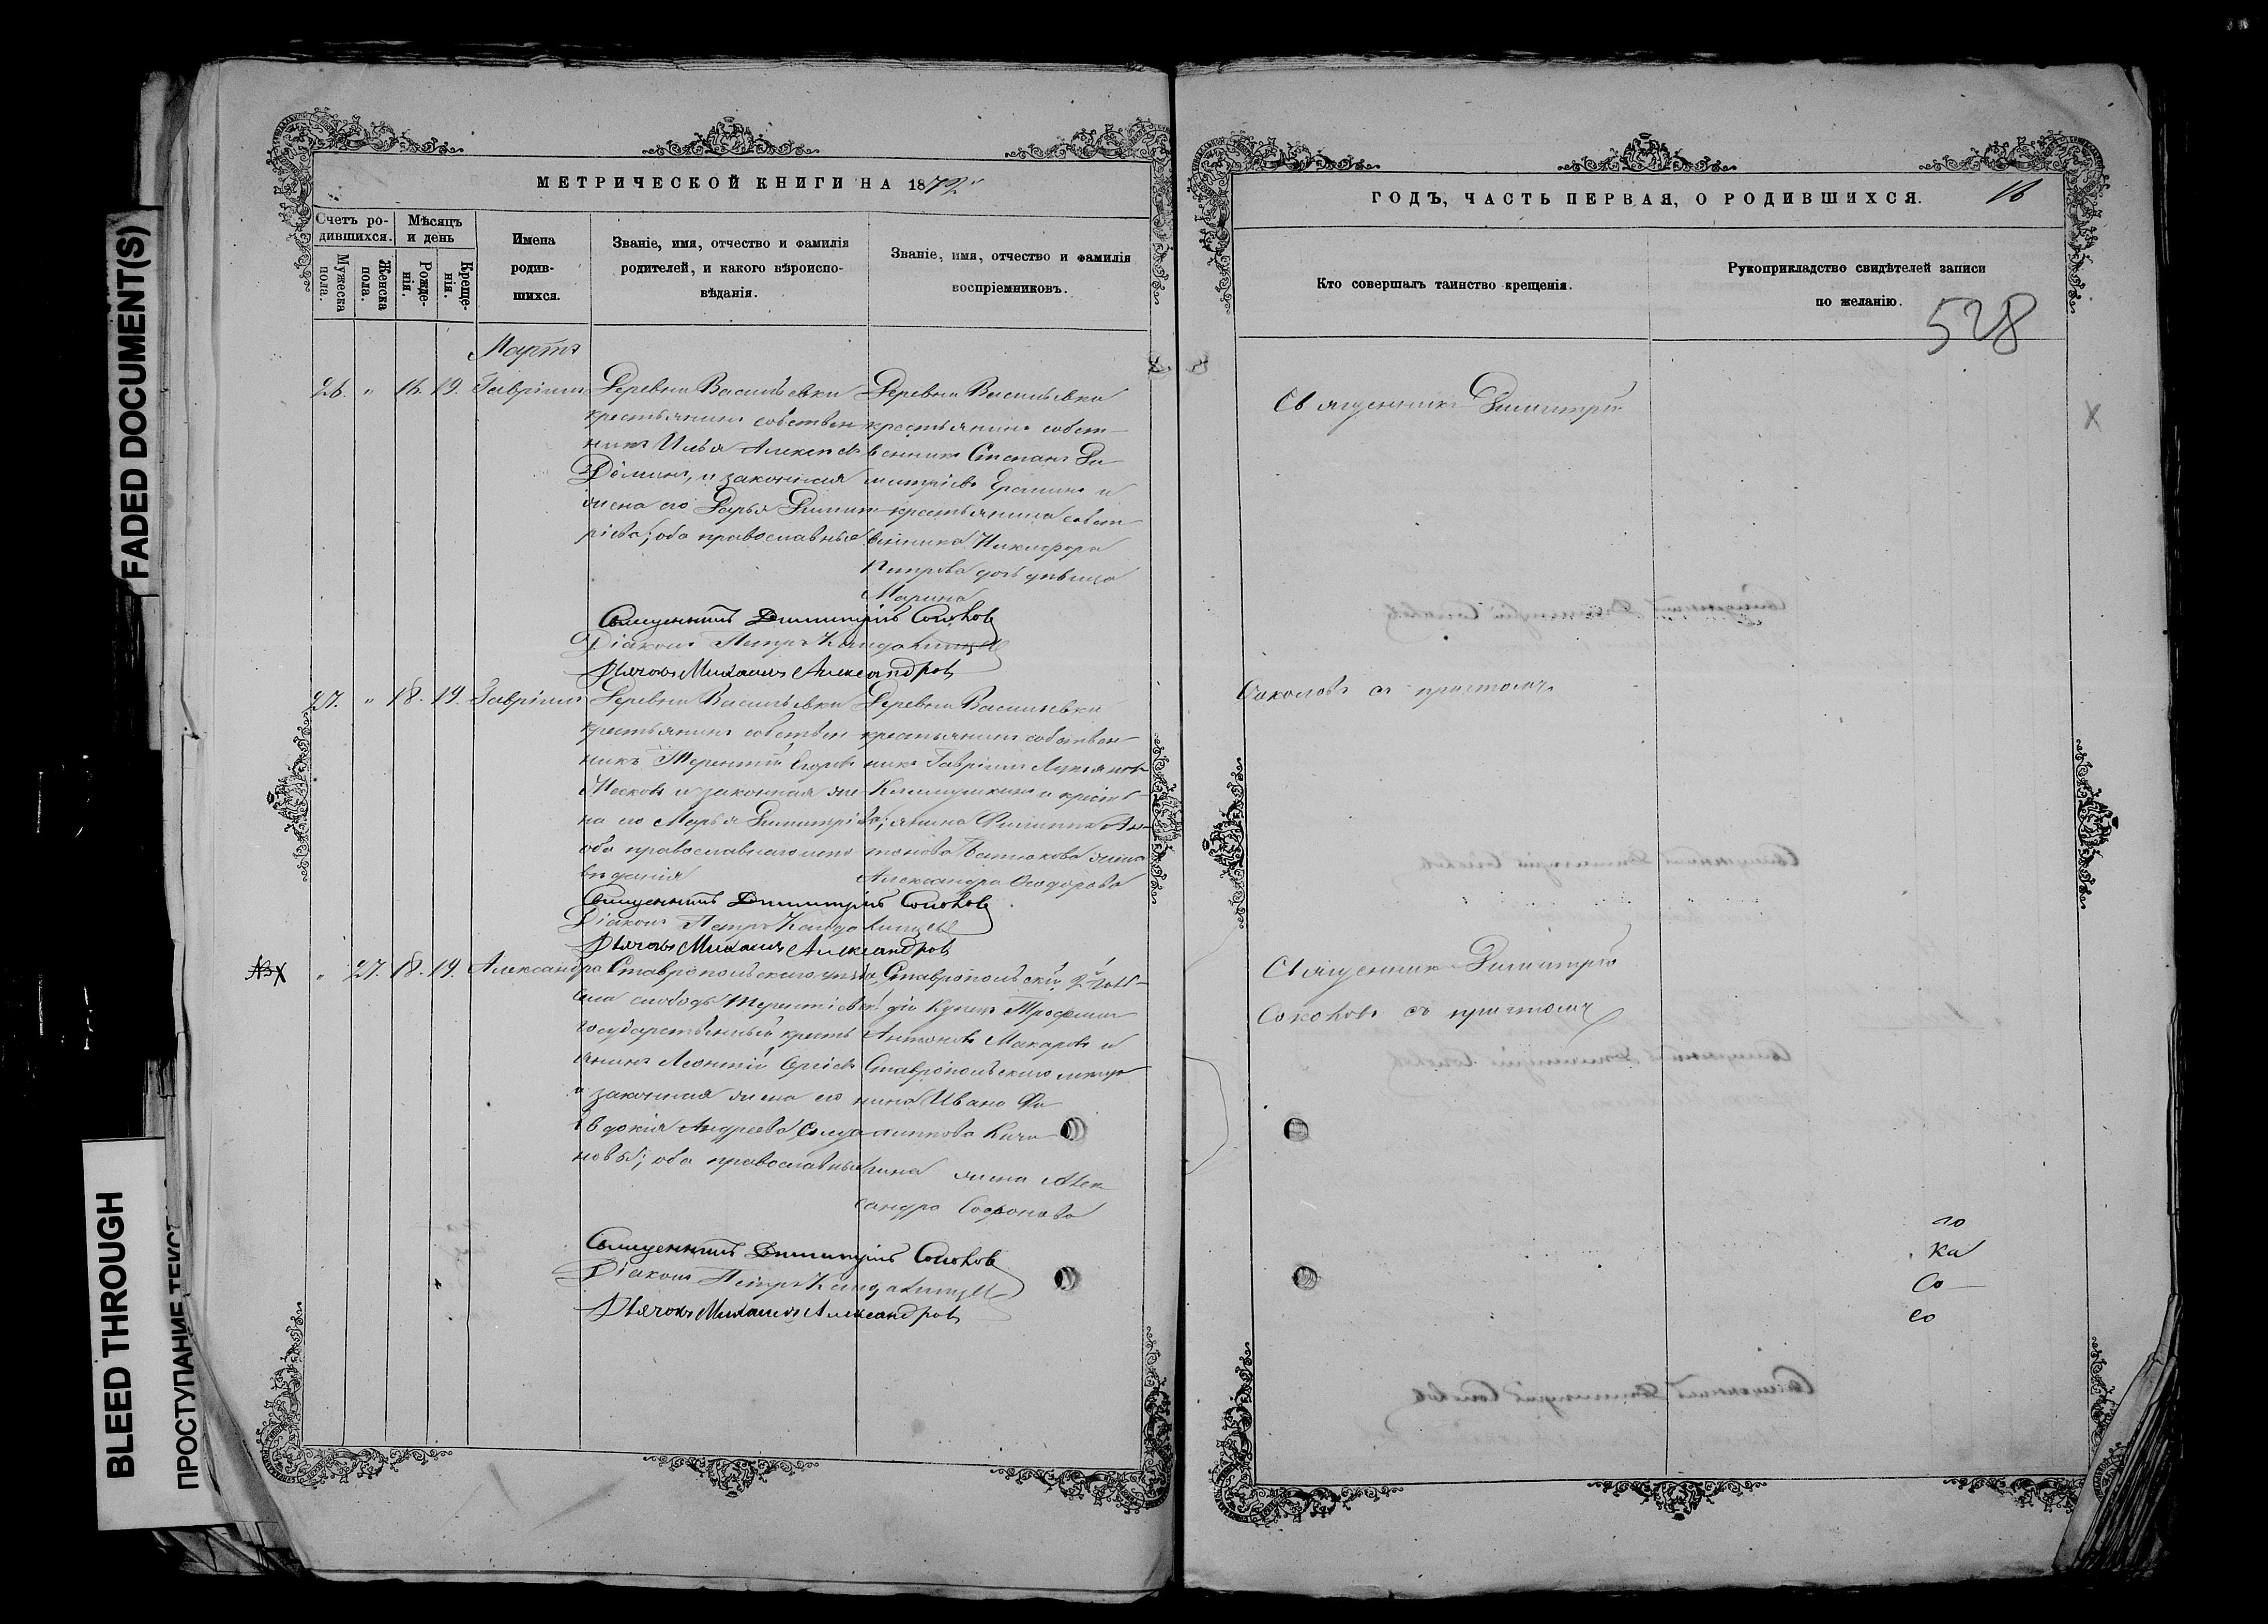 FADED DOCUMENT(S)
BLEED THROUGH
ПРОСТУПАНИЕ ТЕКСТ
МЕТРИЧЕСКОЙ КНИГИ НА 1872
Счетъ ро-
дившихся.
Мужеска
пола.
Женска
пола.
Мѣсяцъ
и день
Рожде-
нія.
Креще-
нія.
Имена
родив-
шихся.
Званіе, имя, отчество и фамилія
родителей, и какого вѣроиспо-
вѣданія.
Званіе, имя, отчество и фамилія
воспріемниковъ.
Марта
26. " 16. 19. Гавріилъ
Деревни Васильевки
крестьянинъ собствен
никъ Илья Алексѣевъ
Дёминъ, и законная
жена его Дарья Димит
ріева; оба православные
Деревни Васильевки
крестьянинъ собст-
венникъ Степанъ Ди
митріевъ и
крестьянина собст-
венника Никифора
Петрова дочь дѣвица
Марина
Священникъ Димитрій Соколовъ
Діаконъ Петръ
Дьячокъ Михаилъ Александровъ
27. " 18. 19. Гавріилъ
Деревни Васильевки
крестьянинъ собствен
никъ Терентій Егоровъ
и законная же
на его Марья Димитріева;
оба православнаго испо
вѣданія
Деревни Васильевки
крестьянинъ собствен-
никъ Гавріилъ Лукьяновъ
и кресть-
янина Филиппа Ан-
тонова жена
Александра Ѳеодорова
Священникъ Димитрій Соколовъ
Діаконъ Петръ
Дьячокъ Михаилъ Александровъ
" 27. 18. 19. Александра
Ставропольскаго уѣзда,
села слободы
государственный кресть
янинъ Леонтій
и законная жена его
Евдокія Андреева
оба православные
Ставропольскій 2й гиль-
діи Купецъ Трофимъ
Антоновъ Макаровъ и
Ставропольскаго мѣща
нина Ивана Фи
липпова
жена Алек
сандра Софонова
Священникъ Димитрій Соколовъ
Діаконъ Петръ
Дьячокъ Михаилъ Александровъ
ГОДЪ, ЧАСТЬ ПЕРВАЯ, О РОДИВШИХСЯ. 16
Кто совершалъ таинство крещенія.
Рукоприкладство свидѣтелей записи
по желанію.
528
Священникъ Димитрій
Соколовъ съ причтомъ
Священникъ Димитрій
Соколовъ съ причтомъ
ка
Со